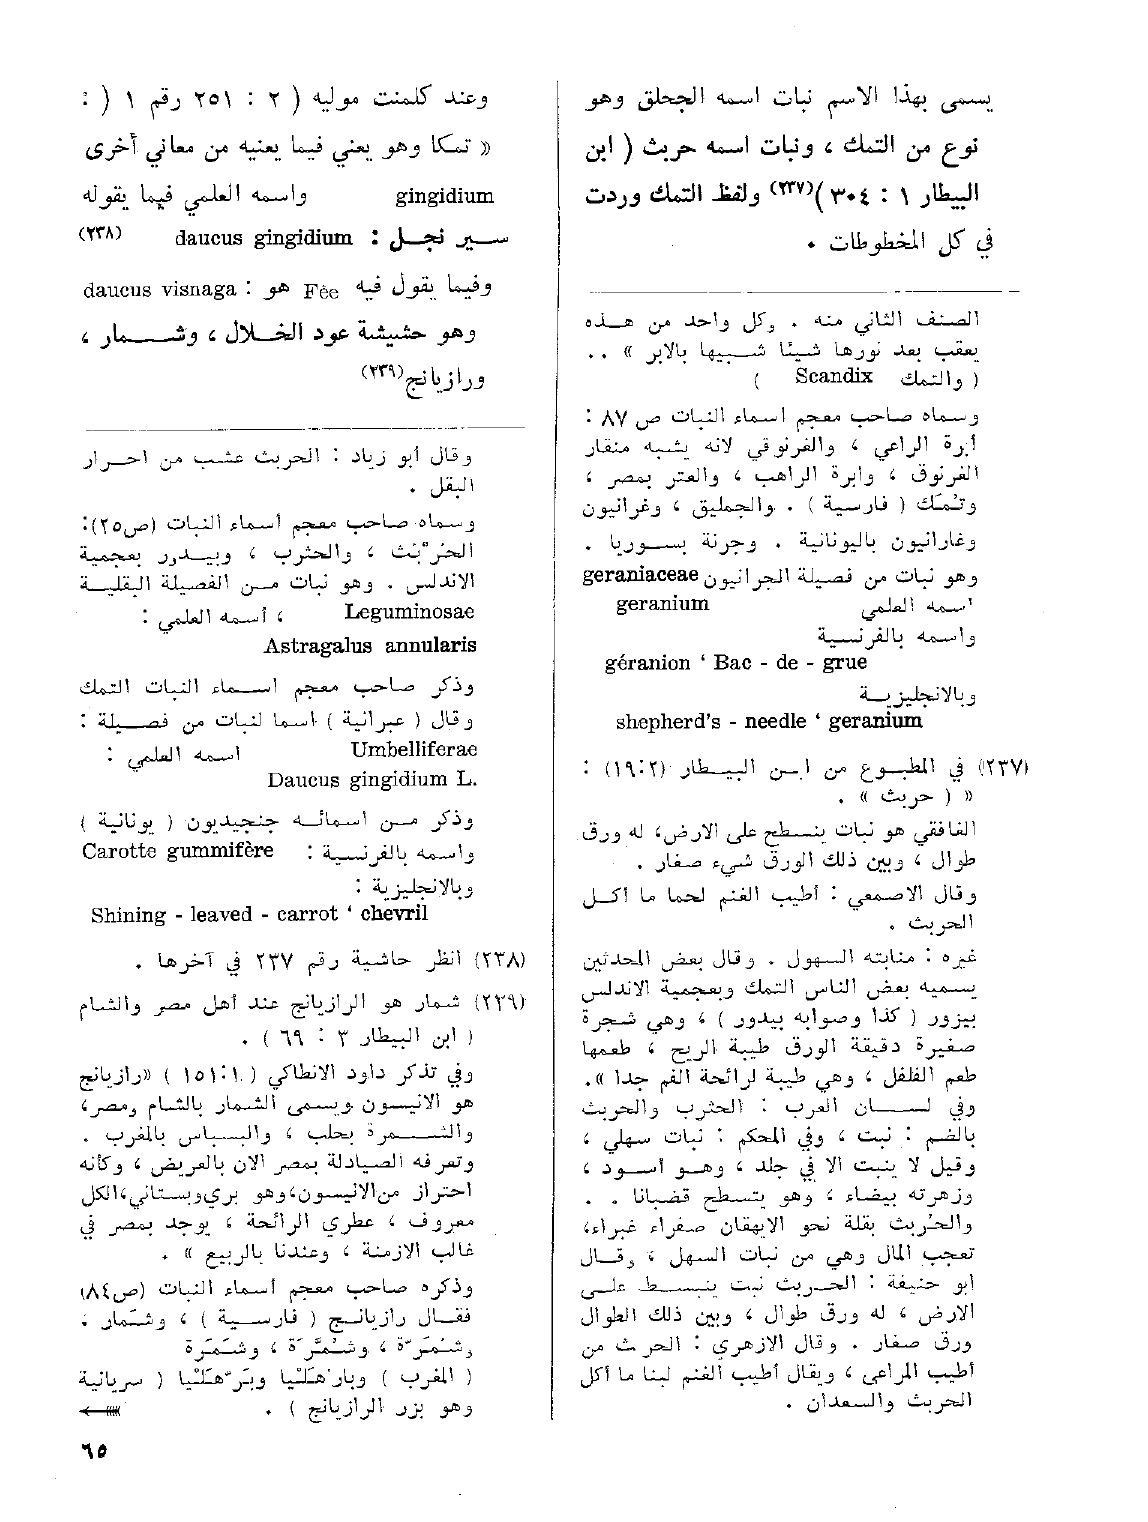 يسمى بهذا الاسم نبات اسمه الجحلق وهو
نوع من التمك ، ونبات اسمه حربث ( ابن
البيطار ١ : ٣٠٤ )(٢٣٧) ولفظ التمك وردت
في كل المخطوطات ٠
الصنف الثاني منه . وكل واحد من هــذه
يعقب بعد نورها شيئا شــبيها بالابر » ..
( والتمك Scandix )
وسماه صاحب معجم اسماء النبات ص ٨٧ :
أبرة الراعي ، والغرنوقي لانه يشبه منقار
الغرنوق ، وابرة الراهب ، والعتر بمصر ،
وتمك ( فارسية ) . والجمليق ، وغرانيون
وغارانيون باليونانية . وجرنة بســوريا .
وهو نبات من فصيلة الجرانيون geraniaceae
اسمه العلمي geranium
واسمه بالفرنسية
géranion ‘ Bac - de - grue
وبالانجليزيــة
shepherd's - needle ‘ geranium
(٢٣٧) في المطبــوع من ابــن البيــطار (١٩:٢) :
« ( حربث » .
الغافقي هو نبات ينسطح على الارض، له ورق
طوال ، وبين ذلك الورق شيء صغار .
وقال الاصمعي : أطيب الغنم لحما ما أكــل
الحربث .
غيره : منابته الســهول . وقال بعض المحدثين
يسميه بعض الناس التمك وبعجمية الاندلس
بيزور ( كذا وصوابه بيدور ) ، وهي شجرة
صغيرة دقيقة الورق طيبة الريح ، طعمها
طعم الفلفل ، وهي طيبة لرائحة الفم جدا ».
وفي لســـان العرب : الحثرب والحربث
بالضم : نبت ، وفي المحكم : نبات سهلي ،
وقيل لا ينبت الا في جلد ، وهــو أســود ،
وزهرته بيضاء ، وهو يتسطح قضبانا . .
والحُربث بقلة نحو الايهقان صفراء غبراء،
تعجب المال وهي من نبات السهل ، وقــال
ابو حنيفة : الحربث نبت ينبســط علــى
الارض ، له ورق طوال ، وبين ذلك الطوال
ورق صغار . وقال الازهري : الحربث من
أطيب المراعي ، ويقال أطيب الغنم لبنا ما أكل
الحربث والسعدان .
وعند كلمنت موليه ( ٢ : ٢٥١ رقم ١ ( :
« تمكا وهو يعني فيما يعنيه من معاني أخرى
gingidium واسمه العلمي فيما يقوله
ســير نجــل : daucus gingidium (٢٣٨)
وفيما يقول فيه Fée هو : daucus visnaga
وهو حشيشة عود الخــلال ، وشــــمار ،
ورازيانج(٢٣٩)
وقال أبو زياد : الحربث عشب من احــرار
البقل .
وسماه صاحب معجم أسماء النبات (ص٢٥):
الحُرْبُث ، والحثرب ، وبيــدور بعجمية
الاندلس . وهو نبات مــن الفصيلة البقليــة
Leguminosae ، أسمه العلمي :
Astragalus annularis
وذكر صاحب معجم اســماء النبات التمك
وقال ( عبرانية ) اسما لنبات من فصــيلة :
Umbelliferae اسمه العلمي :
Daucus gingidium L.
وذكر مــن اسمائــه جنجيديون ( يونانية )
واسمه بالفرنســية : Carotte gummifère
وبالانجليزية :
Shining - leaved - carrot ‘ chevril
(٢٣٨) انظر حاشية رقم ٢٣٧ في آخرها .
(٢٣٩) شمار هو الرازيانج عند أهل مصر والشام
( ابن البيطار ٣ : ٦٩ ) .
وفي تذكر داود الانطاكي ( ١ : ١٥١ ) «رازيانج
هو الانيسون ويسمى الشمار بالشام ومصر،
والشــــمرة بحلب ، والبسباس بالمغرب .
وتعرفه الصيادلة بمصر الان بالعريض ، وكأنه
احتراز من الانيسون،وهو بري وبستاني،الكل
معروف ، عطري الرائحة ، يوجد بمصر في
غالب الازمنة ، وعندنا بالربيع » .
وذكره صاحب معجم أسماء النبات (ص٨٤)
فقــال رازيانــج ( فارســية ) ، وشمار ،
وشمرة ، وشمرة ، وشمرة
( المغرب ) وبارهليا وبرهليا ( سريانية
وهو بزر الرازيانج ) .
٦٥